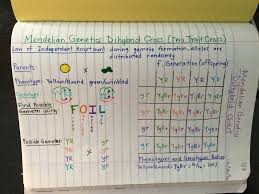 Mendelian Genetics Dihybrid Cross (Two Trait Cross)
Law of Independent Assortment: during gamete formation, alleles are
distributed randomly
Parents
F1 Generation (offspring)
Phenotype: Yellow/Round green/wrinkled
x
Genotype:
Find Possible
Gametes using
FOIL
Possible Gametes:
YR yr
YR yr
YR yr
YR yr
YR YR YR YR
yr YyRr YyRr YyRr YyRr
yr YyRr YyRr YyRr YyRr
yr YyRr YyRr YyRr YyRr
yr YyRr YyRr YyRr YyRr
Phenotypes and Genotypes Ratio
Yellow Round: YyRr
Mendelian Genetics
Dihybrid Cross